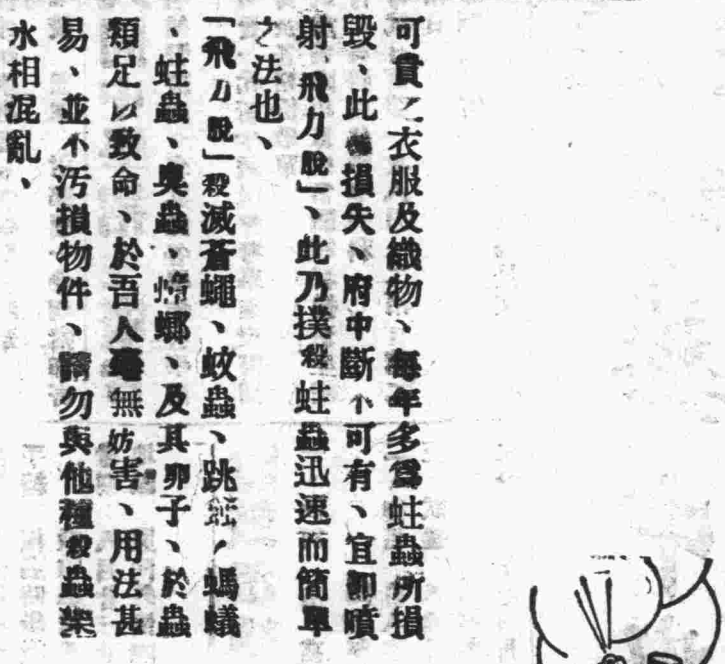 可貴之衣服及織物、每年多爲蛀蟲所損
毀、此種損失、府中斷不可有、宜卽噴
射「飛力脫」、此乃撲殺蛀蟲迅速而簡單
之法也、
「飛力脫」殺滅蒼蠅、蚊蟲、跳蚤、螞蟻
、蛀蟲、臭蟲、蟑螂、及其卵子、於蟲
類足以致命、於吾人毫無妨害、用法甚
易、並不汚損物件、請勿與他種殺蟲藥
水相混亂、